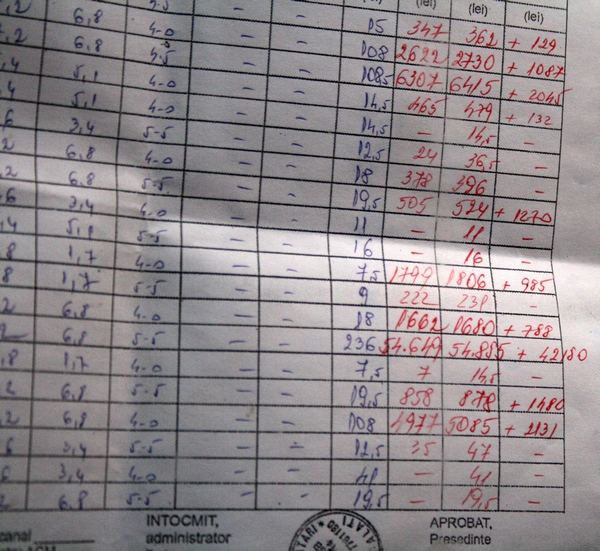 (lei) (lei) (lei)
6,8 4-0 15 347 362 + 129
6,8 5-5 108 2622 2730 + 1087
5,1 4-0 108,5 6307 6415 + 2045
5,1 4-0 14,5 465 479 + 132
3,4 5-5 - - 14,5 - 14,5 -
6,8 4-0 - - 12,5 24 36,5 -
6,8 5-5 - - 18 378 396 -
3,4 4-0 - - 19,5 505 524 + 1270
5,1 5-5 - - 11 - 11 -
1,7 4-0 - - 16 - 16 -
1,7 5-5 - - 7,5 1799 1806 + 985
6,8 4-0 - - 9 222 231 -
6,8 5-5 - - 18 1662 1680 + 788
236 54.649 54.885 + 42180
1,7 4-0 - - 7,5 7 14,5 -
6,8 5-5 - - 19,5 858 878 + 1480
6,8 4-0 - - 108 4977 5085 + 2131
3,4 5-5 - - 12,5 35 47 -
3,4 4-0 - - 41 - 41 -
6,8 5-5 - - 19,5 - 19,5 -
INTOCMIT, APROBAT,
administrator Presedinte